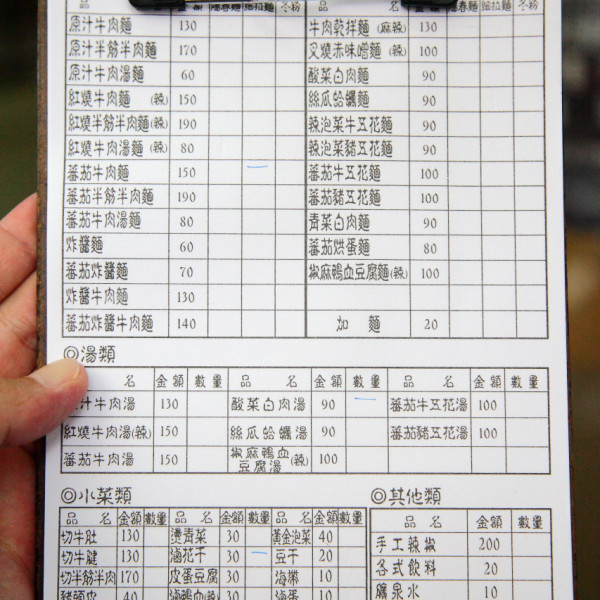 陽春麵 細拉麵 冬粉
原汁牛肉麵 130
原汁半筋半肉麵 170
原汁牛肉湯麵 60
紅燒牛肉麵 (辣) 150
紅燒半筋半肉麵(辣) 190
紅燒牛肉湯麵 (辣) 80
蕃茄牛肉麵 150
蕃茄半筋半肉麵 190
蕃茄牛肉湯麵 80
炸醬麵 60
蕃茄炸醬麵 70
炸醬牛肉麵 130
蕃茄炸醬牛肉麵 140
牛肉乾拌麵 (麻辣) 130
叉燒赤味噌麵 (辣) 100
酸菜白肉麵 90
絲瓜蛤蠣麵 90
辣泡菜牛五花麵 90
辣泡菜豬五花麵 90
蕃茄牛五花麵 100
蕃茄豬五花麵 100
青菜白肉麵 90
蕃茄烘蛋麵 80
椒麻鴨血豆腐麵(辣) 100
加 麵 20
◎湯類
名 金額 數量 品 名 金額 數量 品 名 金額 數量
汁牛肉湯 130 酸菜白肉湯 90 蕃茄牛五花湯 100
紅燒牛肉湯(辣) 150 絲瓜蛤蠣湯 90 蕃茄豬五花湯 100
蕃茄牛肉湯 150 椒麻鴨血豆腐湯(辣) 100
◎小菜類
品 名 金額 數量 品 名 金額 數量 品 名 金額 數量
切牛肚 130 燙青菜 30 黃金泡菜 40
切牛腱 130 滷花干 30 豆干 20
切半筋半肉 170 皮蛋豆腐 30 海帶 10
豬頭皮 40 滷鴨血(辣) 30 滷蛋 10
◎其他類
品 名 金額 數量
手工辣椒 200
各式飲料 20
礦泉水 10